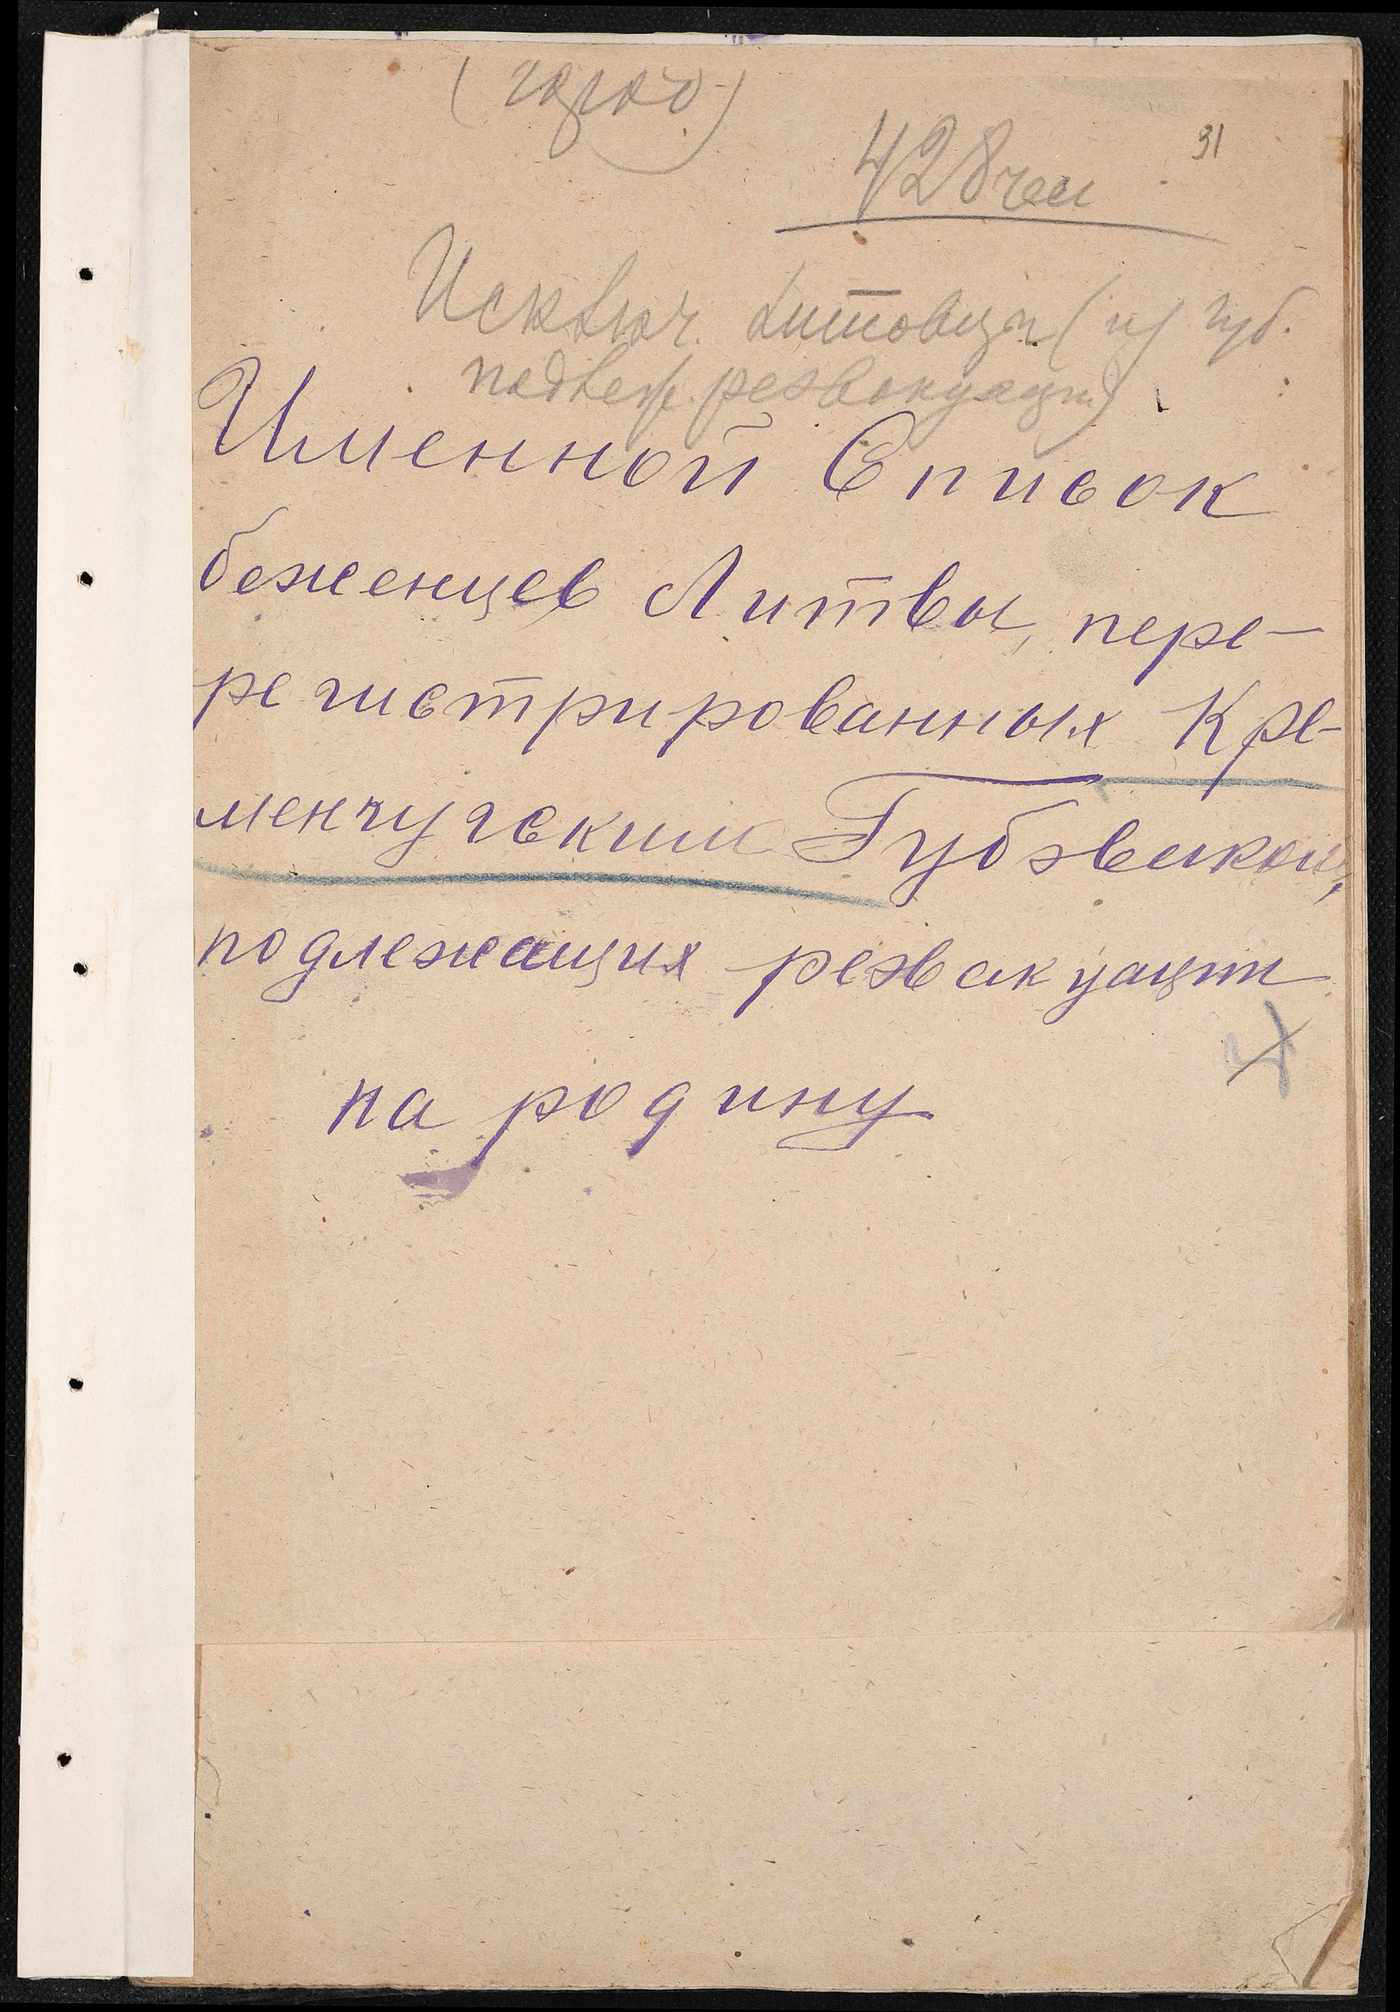 (город)
31
428 чел
Исключ. Литовцы (из губ.
подвер. реэвакуации)
Именной Список
беженцев Литвы, пере-
регистрированных Кре-
менчугским Губэваком,
подлежащих реэвакуации
на родину